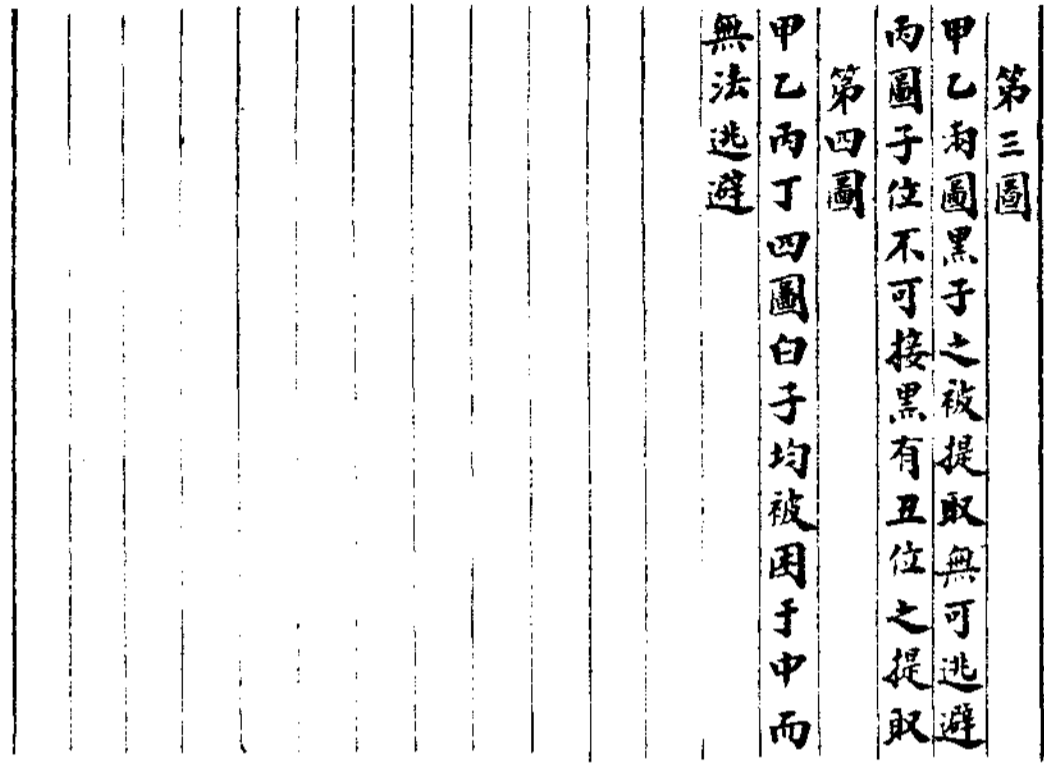 第三圖
甲乙兩圖黑子之被提取無可逃避
丙圖子位不可接黑有丑位之提取
第四圖
甲乙丙丁四圖白子均被困于中而
無法逃避